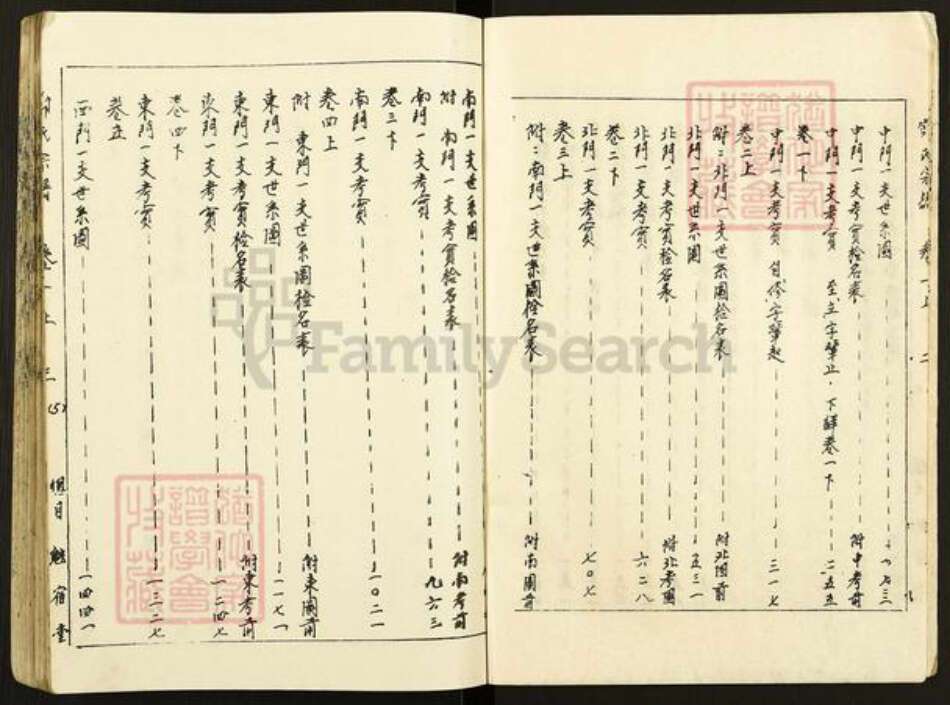 中門一支世系圖 一七三
中門一支考實檢名表 附中考前
中門一支考實 至主字輩止．下詳卷一下 二五五
卷一下
中門一支考實 自修字輩起 三一七
卷二上
附：北門一支世系圖檢名表 附北圖前
北門一支世系圖 五三一
北門一支考實檢名表 附北考圖
北門一支考實 六二八
卷二下
北門一支考實 七〇七
卷三上
附：南門一支世系圖檢名表 附南圖前
南門一支世系圖
附 南門一支考實檢名表 附南考前
南門一支考實 九六三
卷三下
南門一支考實 一〇二一
卷四上
附 東門一支世系圖檢名表 附東圖前
東門一支世系圖 一一七一
東門一支考實檢名表 附東考前
東門一支考實 一二四七
卷四下
東門一支考實 一三二七
卷五
西門一支世系圖 一四四一
氏宗譜 卷一上 三 (5) 堂
FamilySearch